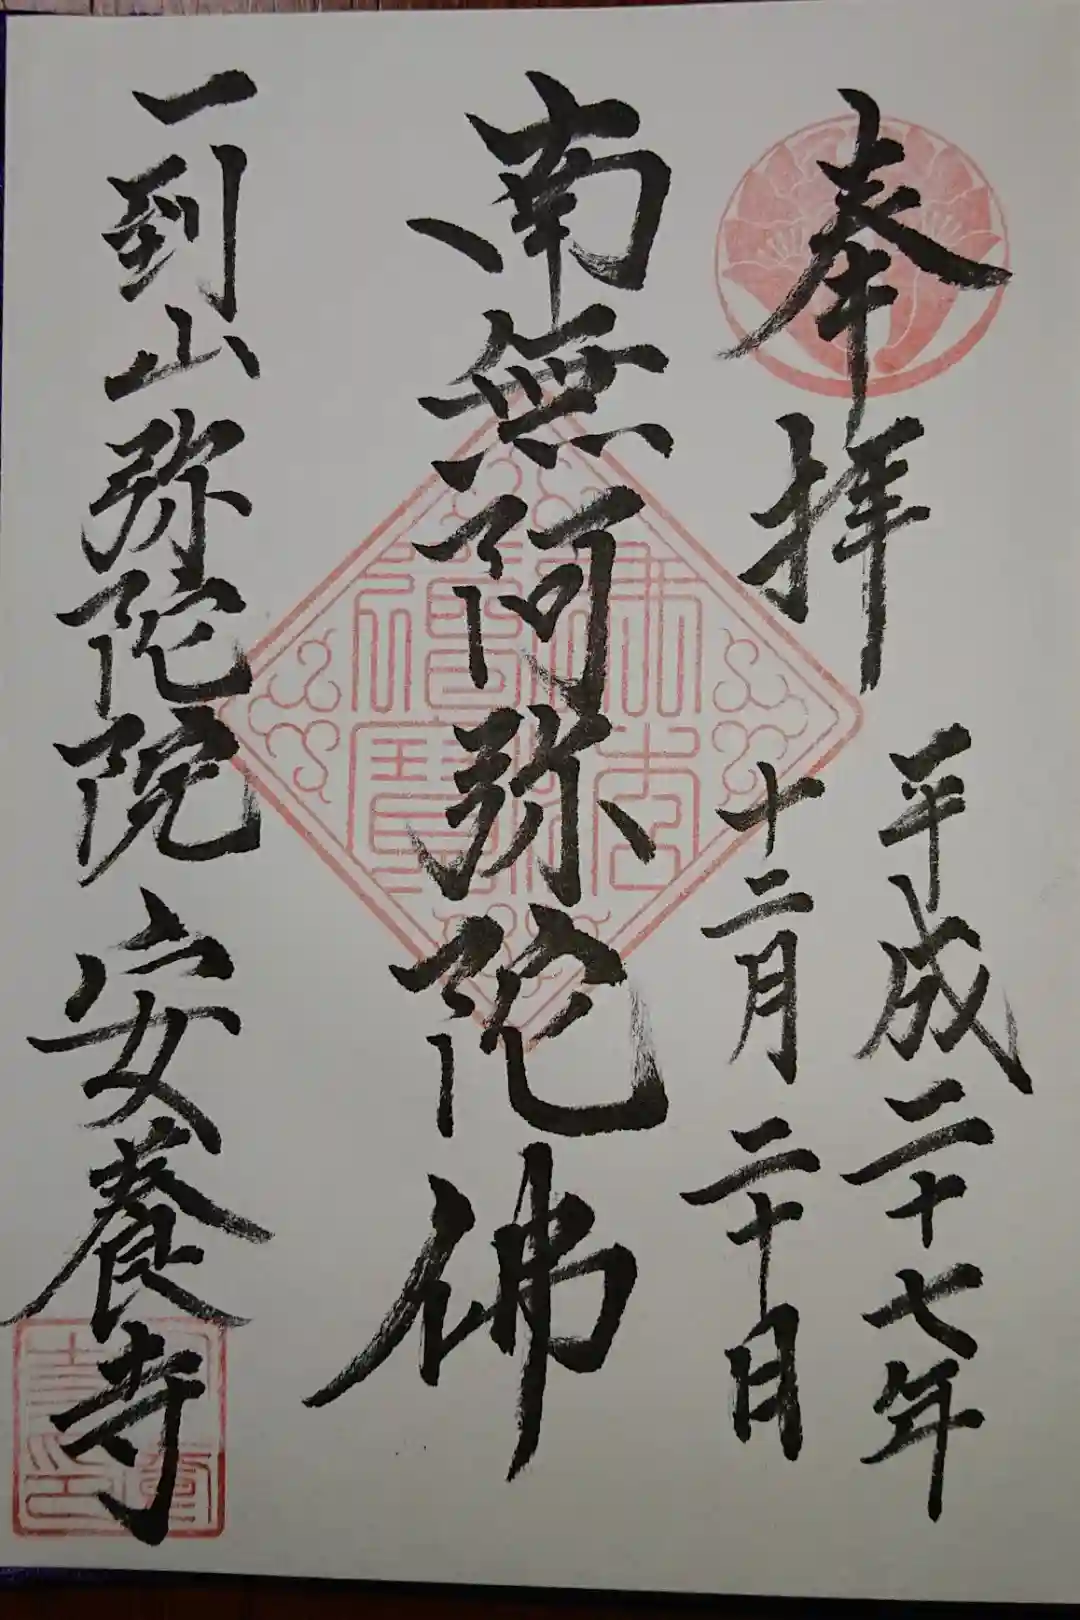 奉拝
平成二十七年
十二月二十日
南無阿弥陀佛
一到山弥陀院安養寺
佛法僧寳